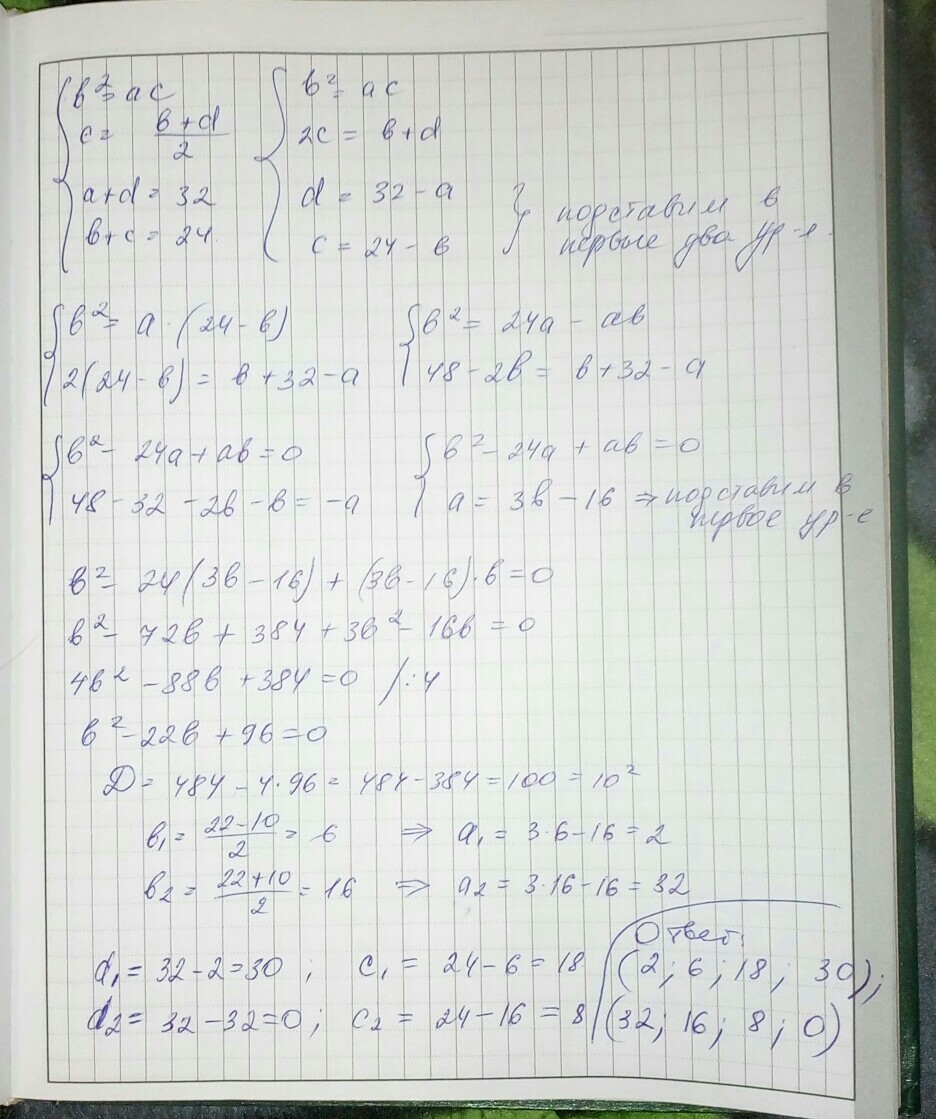 b² = ac   b² = ac
c = (b+d)/2   2c = b+d
a+d = 32   d = 32 - a
b+c = 24   c = 24 - b } подставим в первые два ур-я.
b² = a · (24 - b)   b² = 24a - ab
2(24 - b) = b + 32 - a   48 - 2b = b + 32 - a
b² - 24a + ab = 0   b² - 24a + ab = 0
48 - 32 - 2b - b = -a   a = 3b - 16 ⇒ подставим в первое ур-е
b² - 24(3b - 16) + (3b - 16)·b = 0
b² - 72b + 384 + 3b² - 16b = 0
4b² - 88b + 384 = 0 /:4
b² - 22b + 96 = 0
D = 484 - 4·96 = 484 - 384 = 100 = 10²
b₁ = (22-10)/2 = 6 ⇒ a₁ = 3·6 - 16 = 2
b₂ = (22+10)/2 = 16 ⇒ a₂ = 3·16 - 16 = 32
d₁ = 32 - 2 = 30 ; c₁ = 24 - 6 = 18
d₂ = 32 - 32 = 0 ; c₂ = 24 - 16 = 8
Ответ:
(2; 6; 18; 30);
(32; 16; 8; 0)